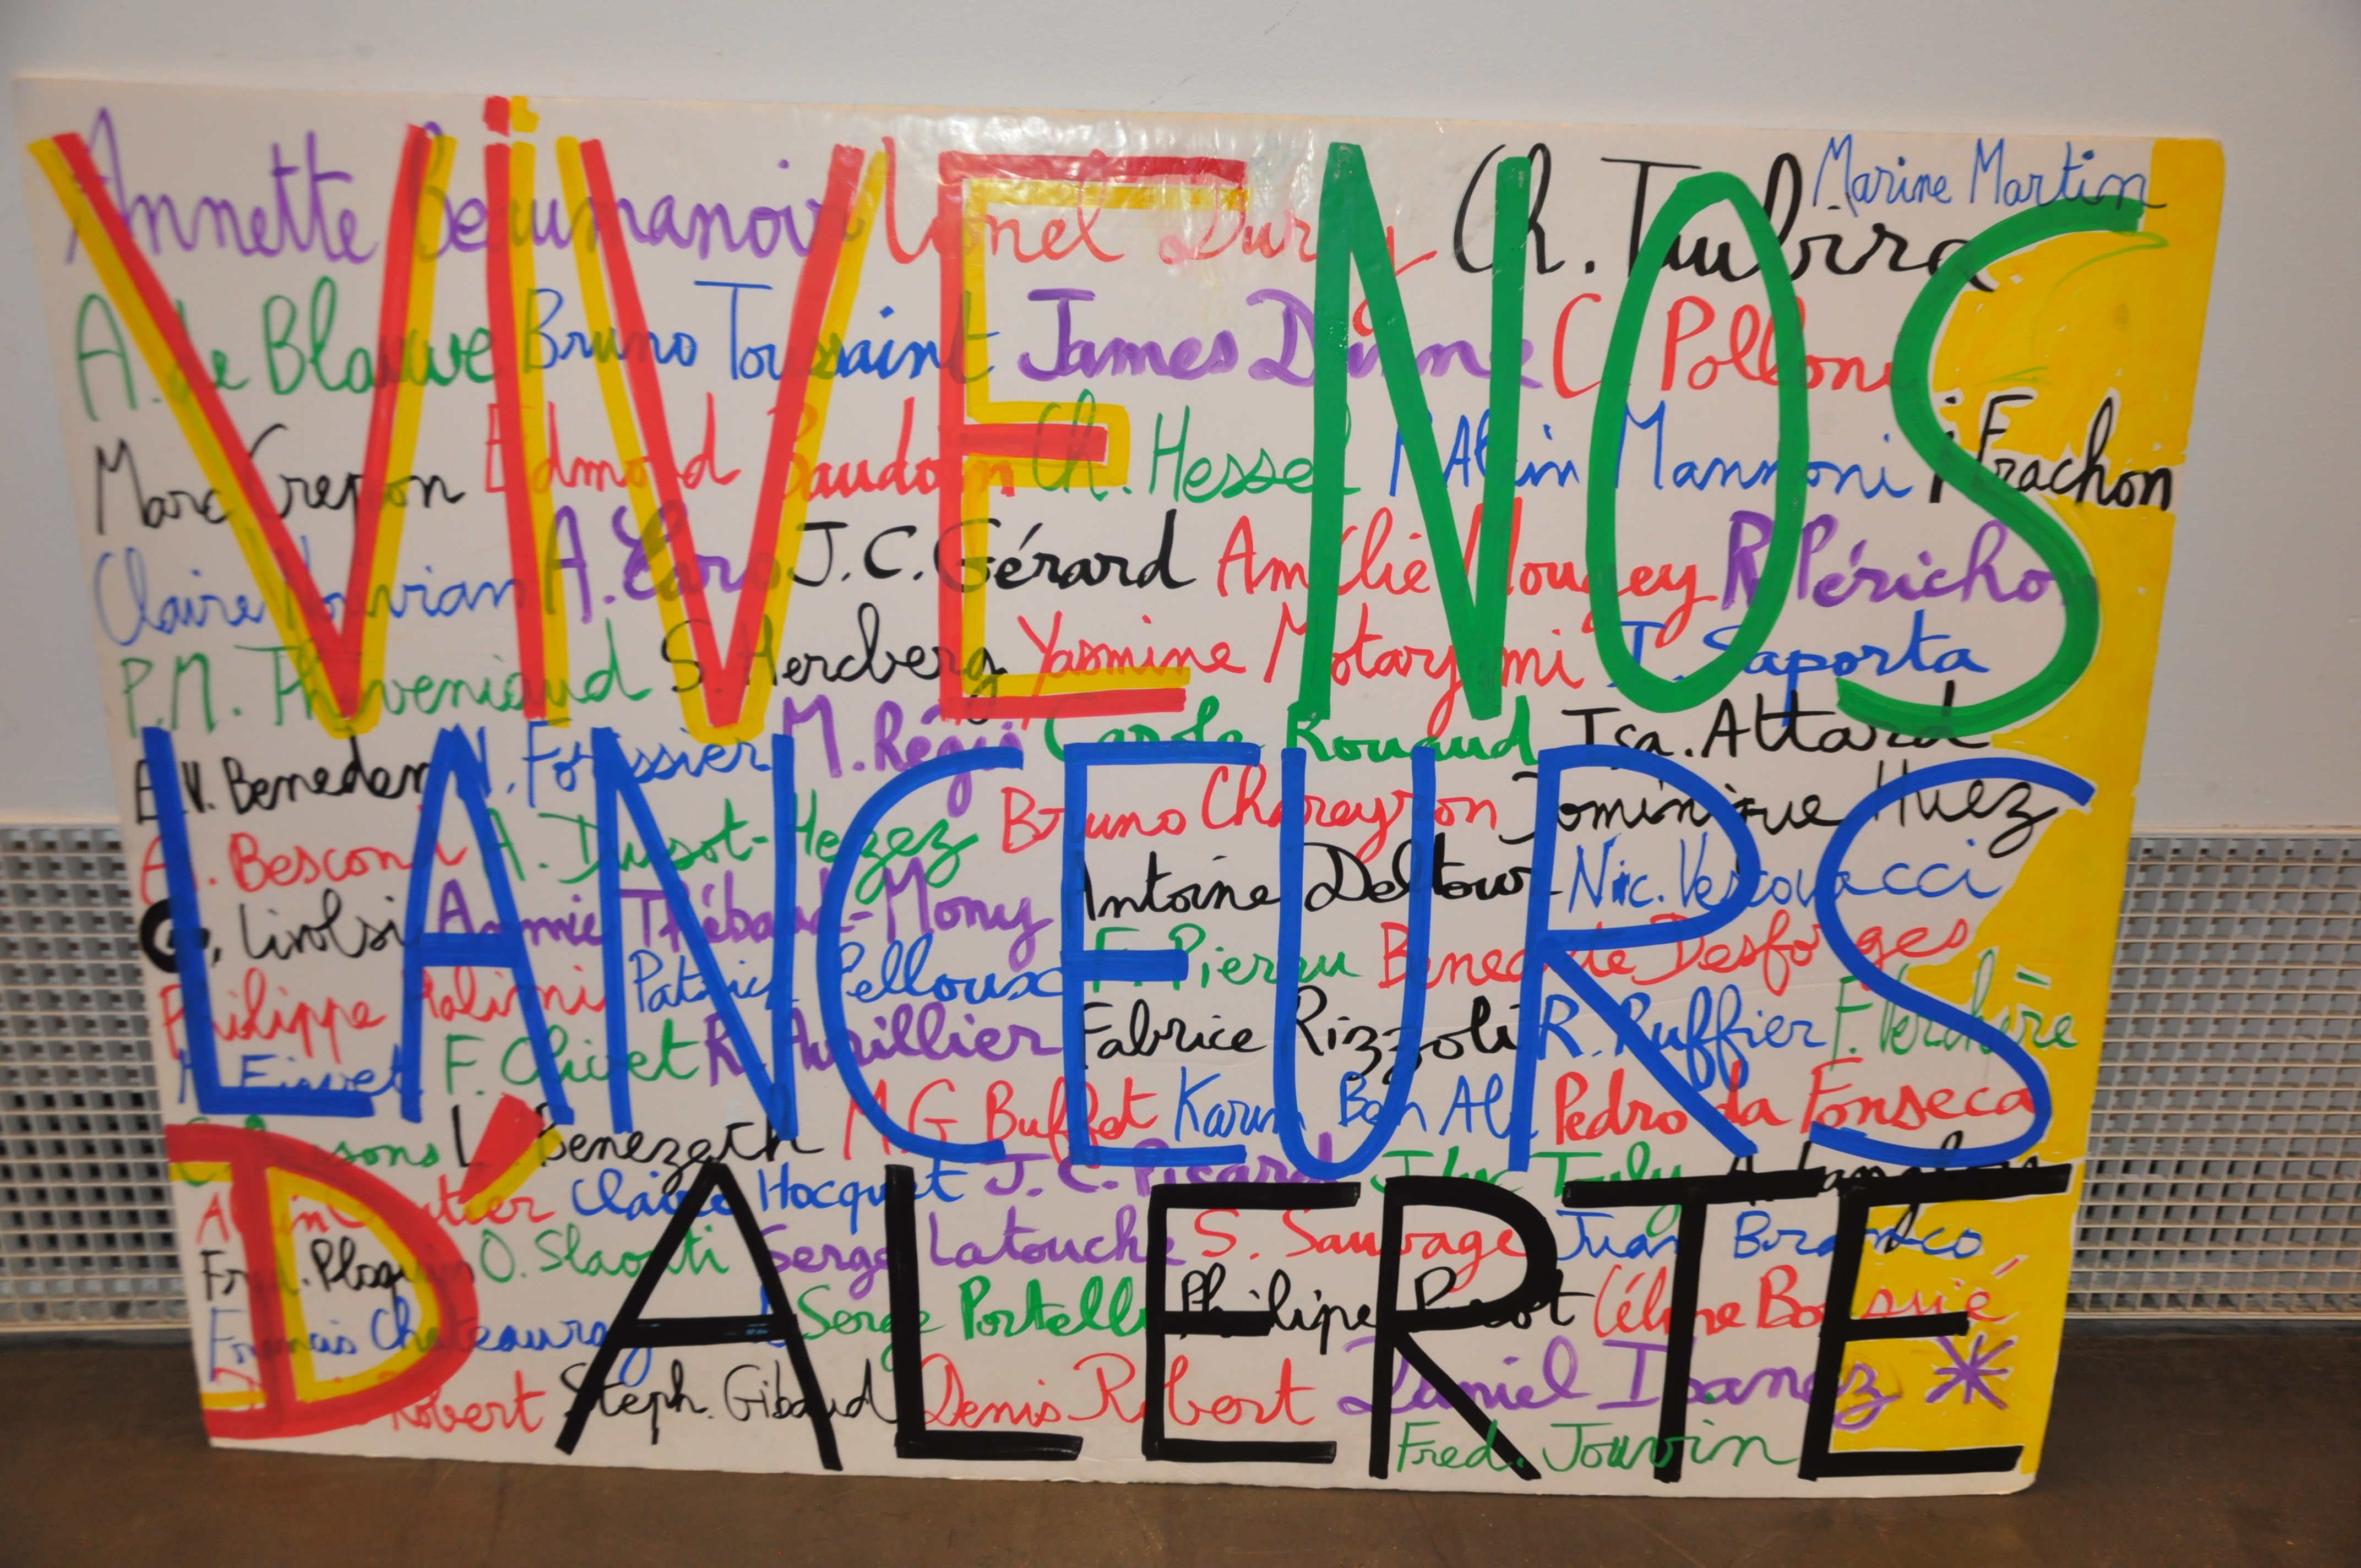 VIVE NOS
LANCEURS
D'ALERTE
Annette Beaumanoir Lionel Ch. Taubira Marine Martin
A. de Blauwe Bruno Toussaint James Dunne C Pollone
Marc Crepon Edmond Baudoin Ch. Hessel Alain Mannoni F Frachon
Claire Nouvian A. Caro J.C. Gérard Amélie Mougey R Périchon
P.M. Théveniaud S. Hercberg Yasmine Motarjemi T. Saporta
E.V. Beneden N. Forissier M. Carole Rouaud Isa. Attard
A. Bescond A. Dusot-Hezez Bruno Chareyron Dominique Huez
Livolsi Annie Thébaud-Mony Antoine Deltour Nic. Vescovacci
Philippe Patrick Pelloux F. Pierru Benedicte Desforges
F. Chivet R. Avrillier Fabrice Rizzoli R. Ruffier F. Verchère
L. Benezech M.G Buffet Karim Ben Ali Pedro da Fonseca
Alain Gautier Claire Hocquet J.C. Picard J Luc Tuly
Fred. O. Slaouti Serge Latouche S. Sauvage Juan Branco
Francis Serge Portelli Philipe Céline Boussié
Robert Steph. Gibaud Denis Robert Daniel Ibanez
Fred. Jouvin